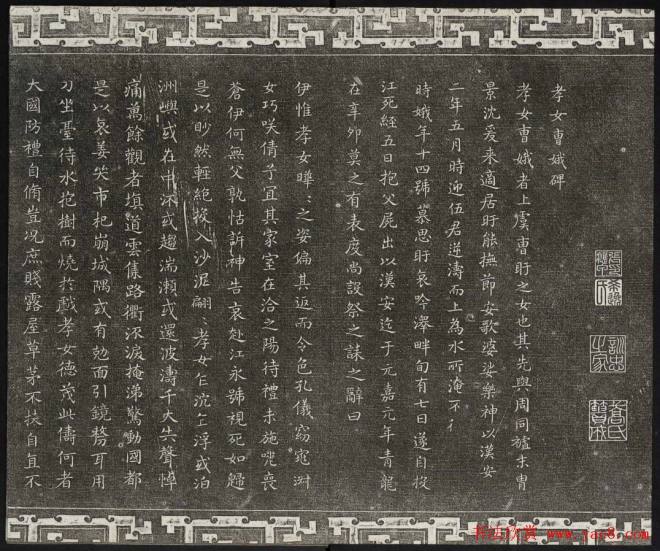 孝女曹娥碑
孝女曹娥者上虞曹盱之女也其先與周同祖末冑
景沈爰来適居盱能撫節安歌婆娑樂神以漢安
二年五月時迎伍君逆濤而上為水所淹不
時娥年十四號慕思盱哀吟澤畔旬有七日遂自投
江死經五日抱父屍出以漢安迄于元嘉元年青龍
在辛卯莫之有表度尚設祭之誄之辭曰
伊惟孝女曄〻之姿偏其返而令色孔儀窈窕淑
女巧咲倩兮宜其家室在洽之陽待禮未施嗟喪
蒼伊何無父孰怙訴神告哀赴江永號視死如歸
是以眇然輕絕投入沙泥翩〻孝女乍沉乍浮或泊
洲嶼或在中流或趨湍瀨或還波濤千夫失聲悼
痛萬餘觀者填道雲集路衢泣淚掩涕驚動國都
是以哀姜哭市杞崩城隅或有剋面引鏡剺耳用
刀坐臺待水抱樹而燒於戲孝女德茂此儔何者
大國防禮自脩豈况庶賤露屋草茅不扶自直不
書法欣賞 www.yac8.com